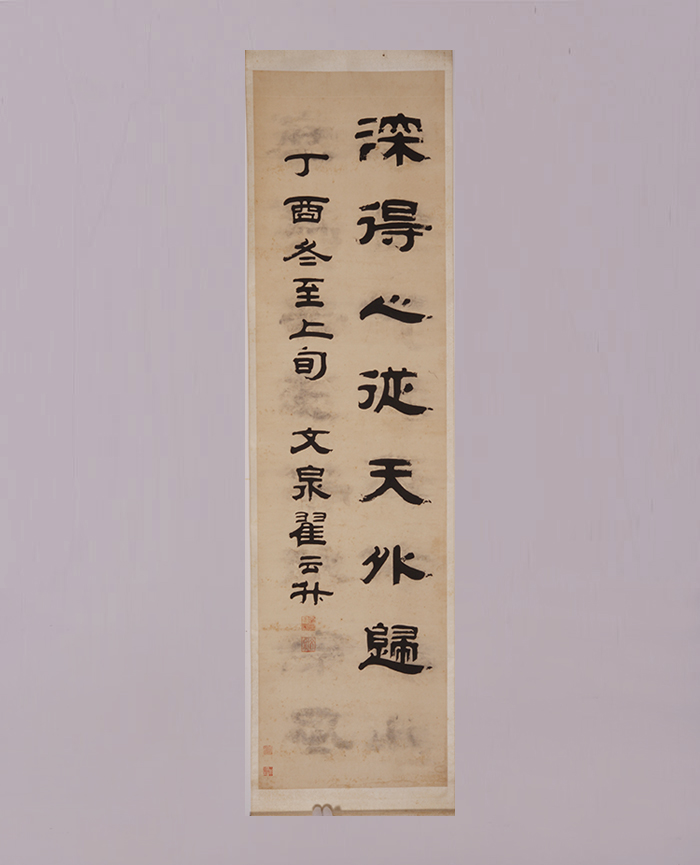 深得心從天外歸
丁酉冬至上旬 文泉翟云升